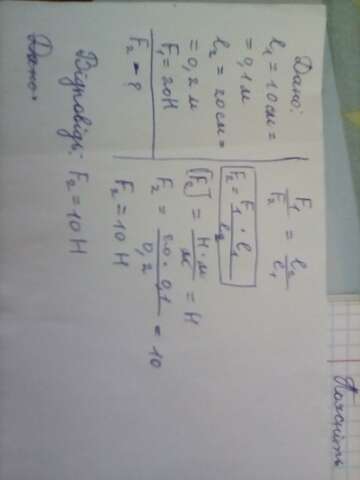 Пояснить
Дано:
l₁ = 10 см =
= 0,1 м
l₂ = 20 см =
= 0,2 м
F₁ = 20 Н
F₂ - ?
F₁/F₂ = l₂/l₁
F₂ = F₁ · l₁ / l₂
[F₂] = Н · м / м = Н
F₂ = 20 · 0,1 / 0,2 = 10
F₂ = 10 Н
Відповідь: F₂ = 10 Н
Дано: